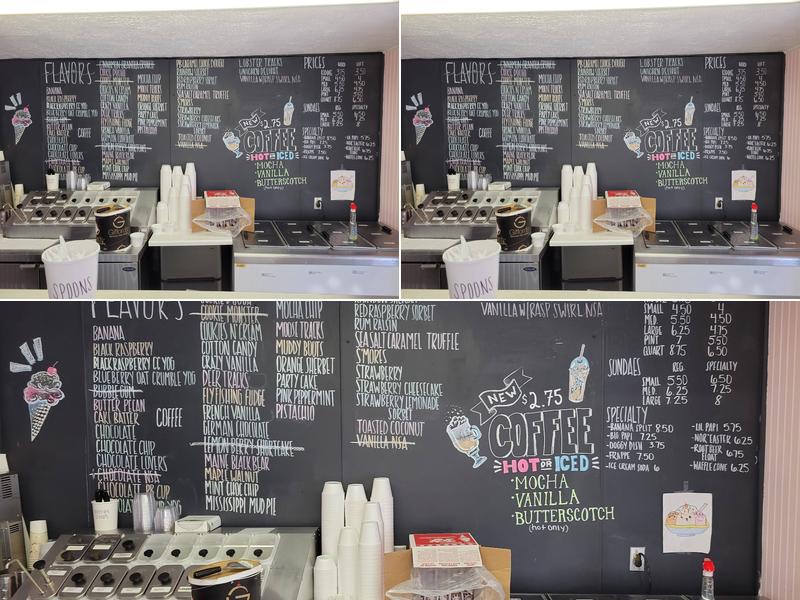 FLAVORS
BANANA
BLACK RASPBERRY
BLACK RASPBERRY CC YOG
BLUEBERRY OAT CRUMBLE YOG
BUBBLE GUM
BUTTER PECAN
CAKE BATTER
CHOCOLATE
CHOCOLATE CHIP
CHOCOLATE LOVERS
CHOCOLATE NSA
CHOCOLATE PB CUP
COFFEE
COOKIE DOUGH
COOKIE MONSTER
COOKIES N' CREAM
COTTON CANDY
CRAZY VANILLA
DEER TRACKS
FLY FISHING FUDGE
FRENCH VANILLA
GERMAN CHOCOLATE
LEMON BERRY SHORTCAKE
MAINE BLACK BEAR
MAPLE WALNUT
MINT CHOC CHIP
MISSISSIPPI MUD PIE
MOCHA CHIP
MOOSE TRACKS
MUDDY BOOTS
ORANGE SHERBET
PARTY CAKE
PINK PEPPERMINT
PISTACHIO
PB CARAMEL COOKIE DOUGH
RAINBOW SORBET
RED RASPBERRY SORBET
RUM RAISIN
SEA SALT CARAMEL TRUFFLE
S'MORES
STRAWBERRY
STRAWBERRY CHEESECAKE
STRAWBERRY LEMONADE
SORBET
TOASTED COCONUT
VANILLA NSA
LOBSTER TRACKS
UNICORN DELIGHT
VANILLA W/RASP SWIRL NSA
NEW $2.75
COFFEE
HOT OR ICED
·MOCHA
·VANILLA
·BUTTERSCOTCH
(hot only)
PRICES
SMALL 4.50 4
MED 5.50 4.50
LARGE 6.25 4.75
PINT 7 5
QUART 8.75 6.50
SUNDAES REG SPECIALTY
SMALL 5.50 6.50
MED 6.25 7.25
LARGE 7.25 8
SPECIALTY
-BANANA SPLIT 8.50
-BIG PAPI 7.25
-DOGGY DISH 3.75
-FRAPPES 7.50
-ICE CREAM SODA 6
-LIL PAPI 5.75
-NOR'EASTER 6.25
-ROOT BEER FLOAT 6.75
-WAFFLE CONE 6.25
SPOONS
Gifford's